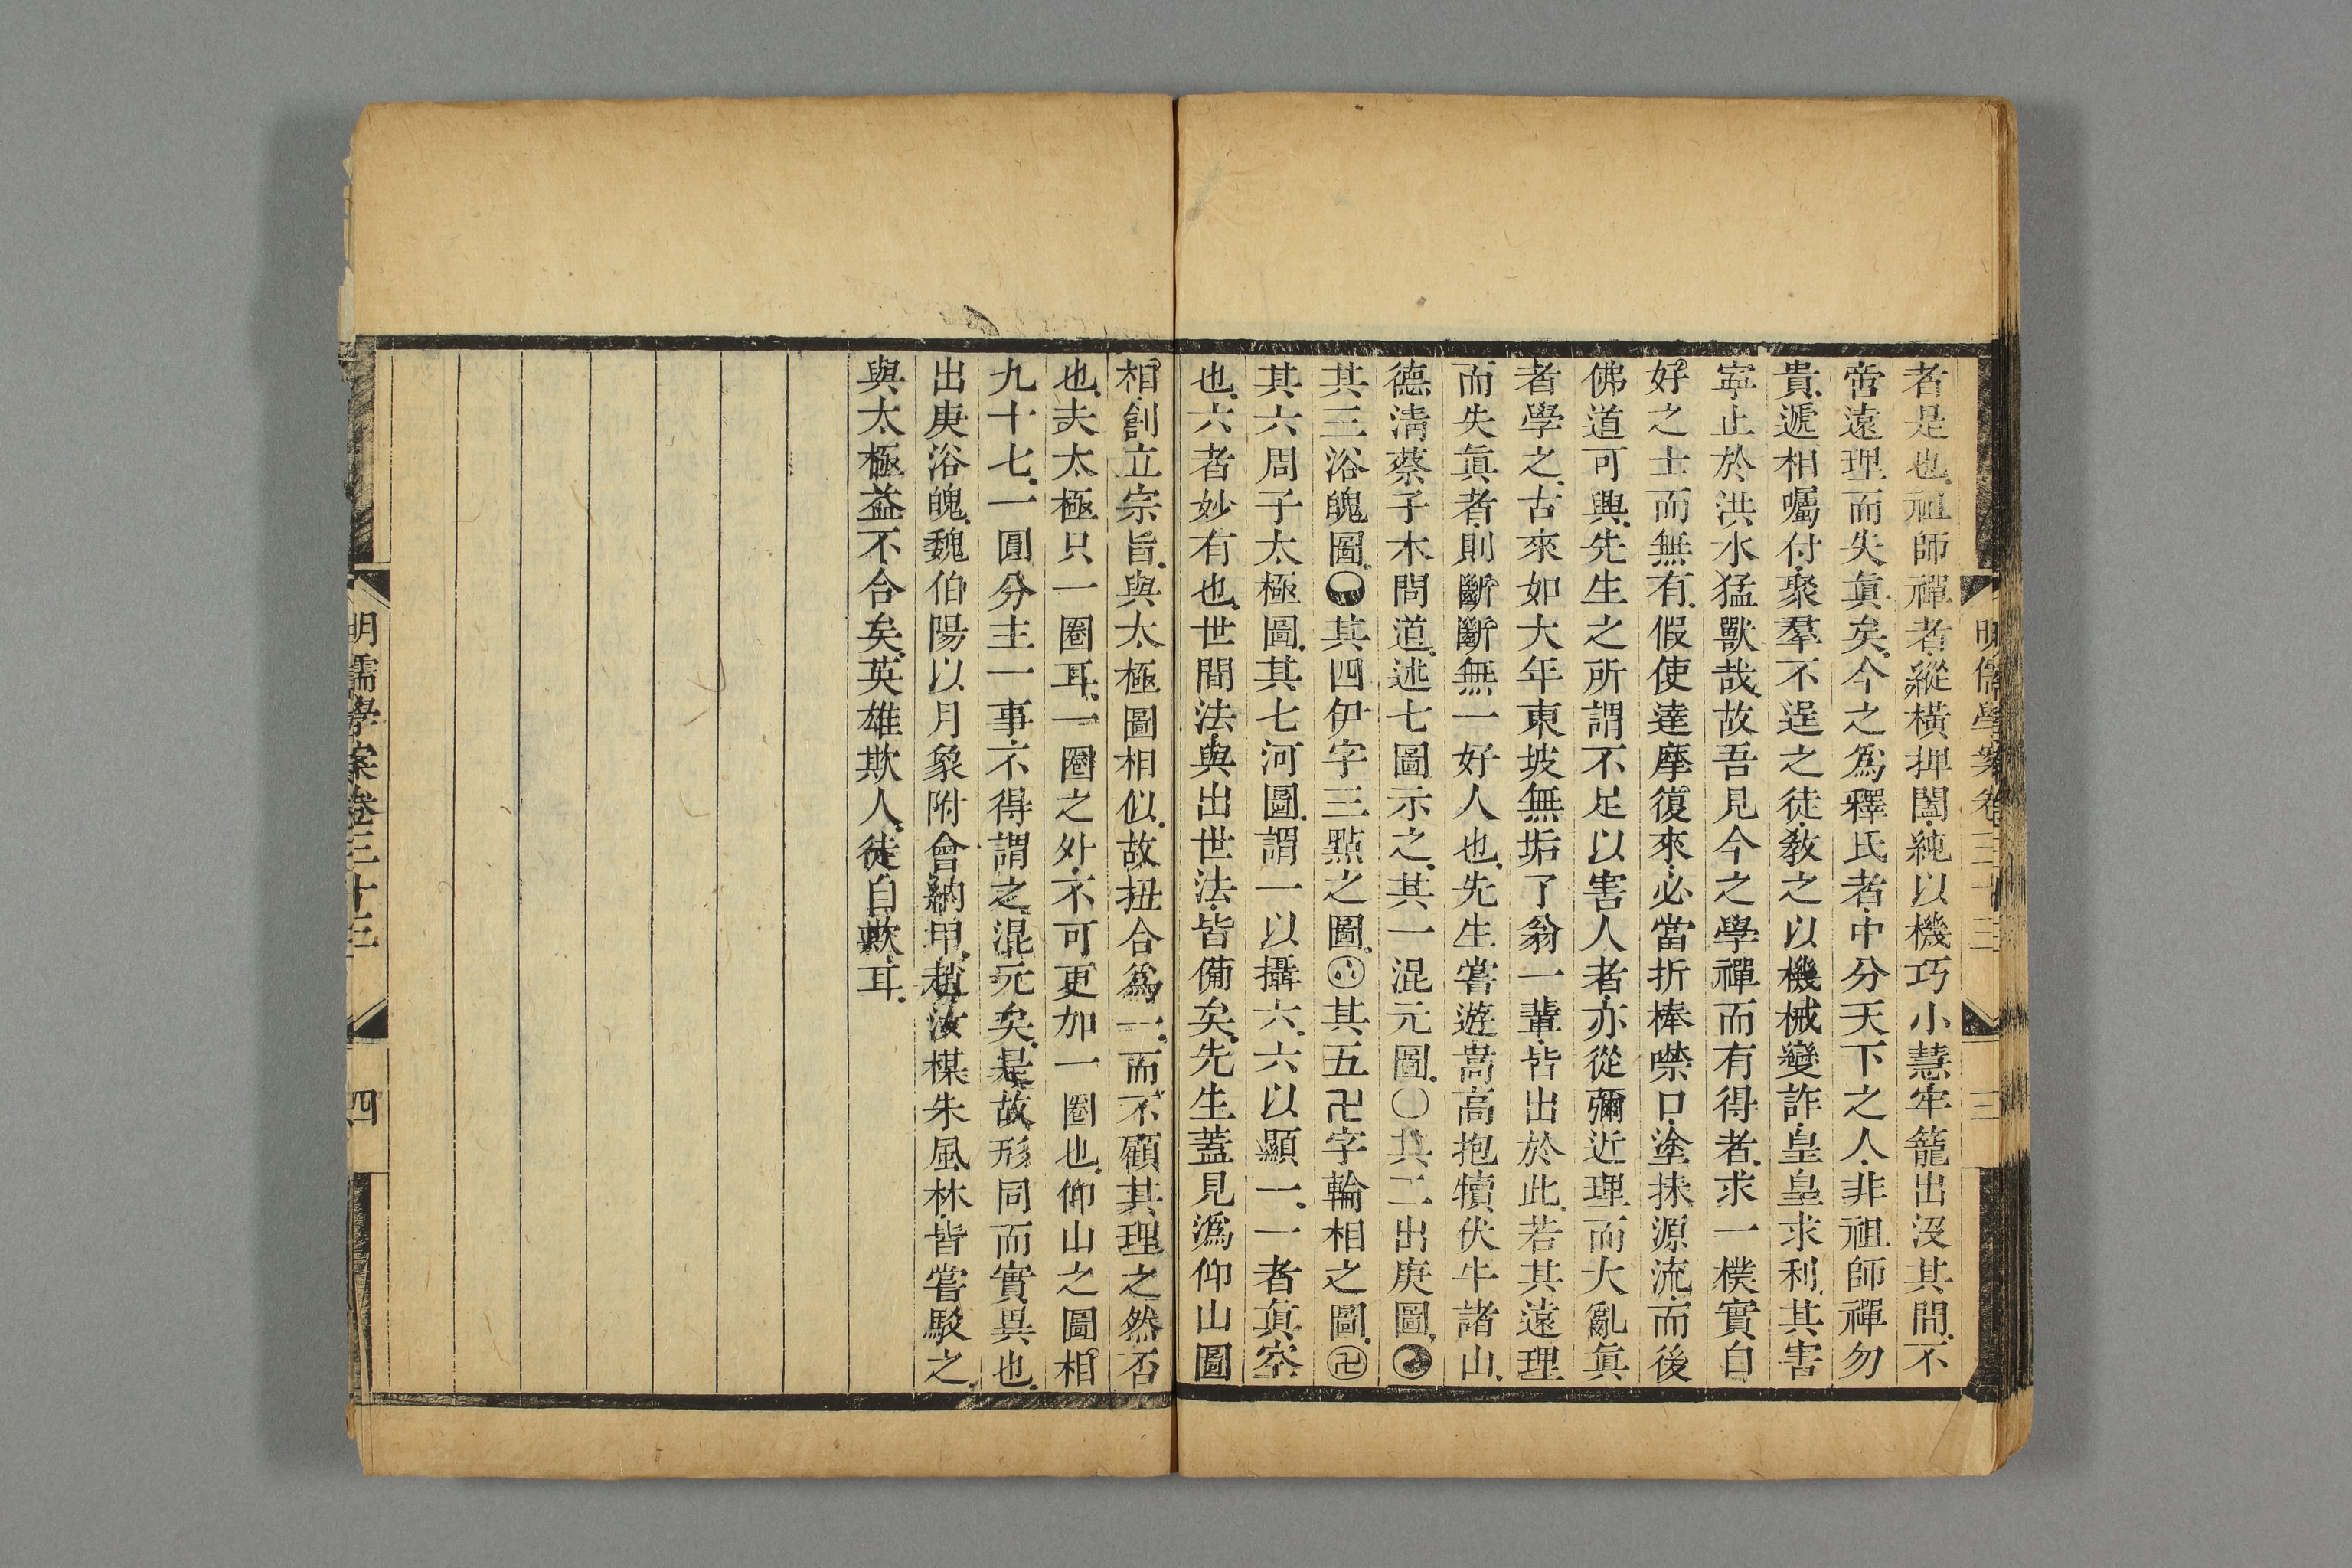 明儒學案卷三十三
三
者是也祖師禪者縱橫捭闔純以機巧小慧牢籠出沒其間不
啻遠理而失眞矣今之爲釋氏者中分天下之人非祖師禪勿
貴遞相囑付聚羣不逞之徒敎之以機械變詐皇皇求利其害
寧止於洪水猛獸哉故吾見今之學禪而有得者求一樸實自
好之士而無有假使達摩復來必當折棒噤口塗抹源流而後
佛道可興先生之所謂不足以害人者亦從彌近理而大亂眞
者學之古來如大年東坡無垢了翁一輩皆出於此若其遠理
而失眞者則斷斷無一好人也先生嘗遊嵩高抱犢伏牛諸山
德清蔡子木問道述七圖示之其一混元圖〇其二出庚圖
其三浴魄圖其四伊字三點之圖其五卍字輪相之圖卍
其六周子太極圖其七河圖謂一以攝六六以顯一一者眞空
也六者妙有也世間法與出世法皆備矣先生蓋見潙仰山圖
相創立宗旨與太極圖相似故扭合爲一而不顧其理之然否
也夫太極只一圈耳一圈之外不可更加一圈也仰山之圖相
九十七一圓分主一事不得謂之混元矣是故形同而實異也
出庚浴魄魏伯陽以月象附會納甲趙汝楳朱風林皆嘗駁之
與太極益不合矣英雄欺人徒自欺耳
明儒學案卷三十三
四